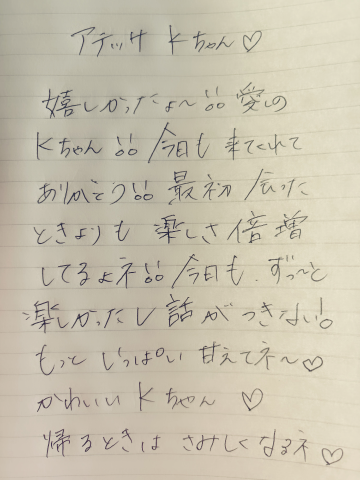 アデッサ Kちゃん♡
嬉しかったよ〜!! 愛しの
Kちゃん!! 今日も 来てくれて
ありがとう!! 最初 会った
ときよりも 楽しさ倍増
してるよネ!! 今日も、ずっ〜と
楽しかったし 話がつきない!
もっと いっぱい 甘えてネ〜♡
かわいい Kちゃん ♡
帰るときは さみしくなるネ♡